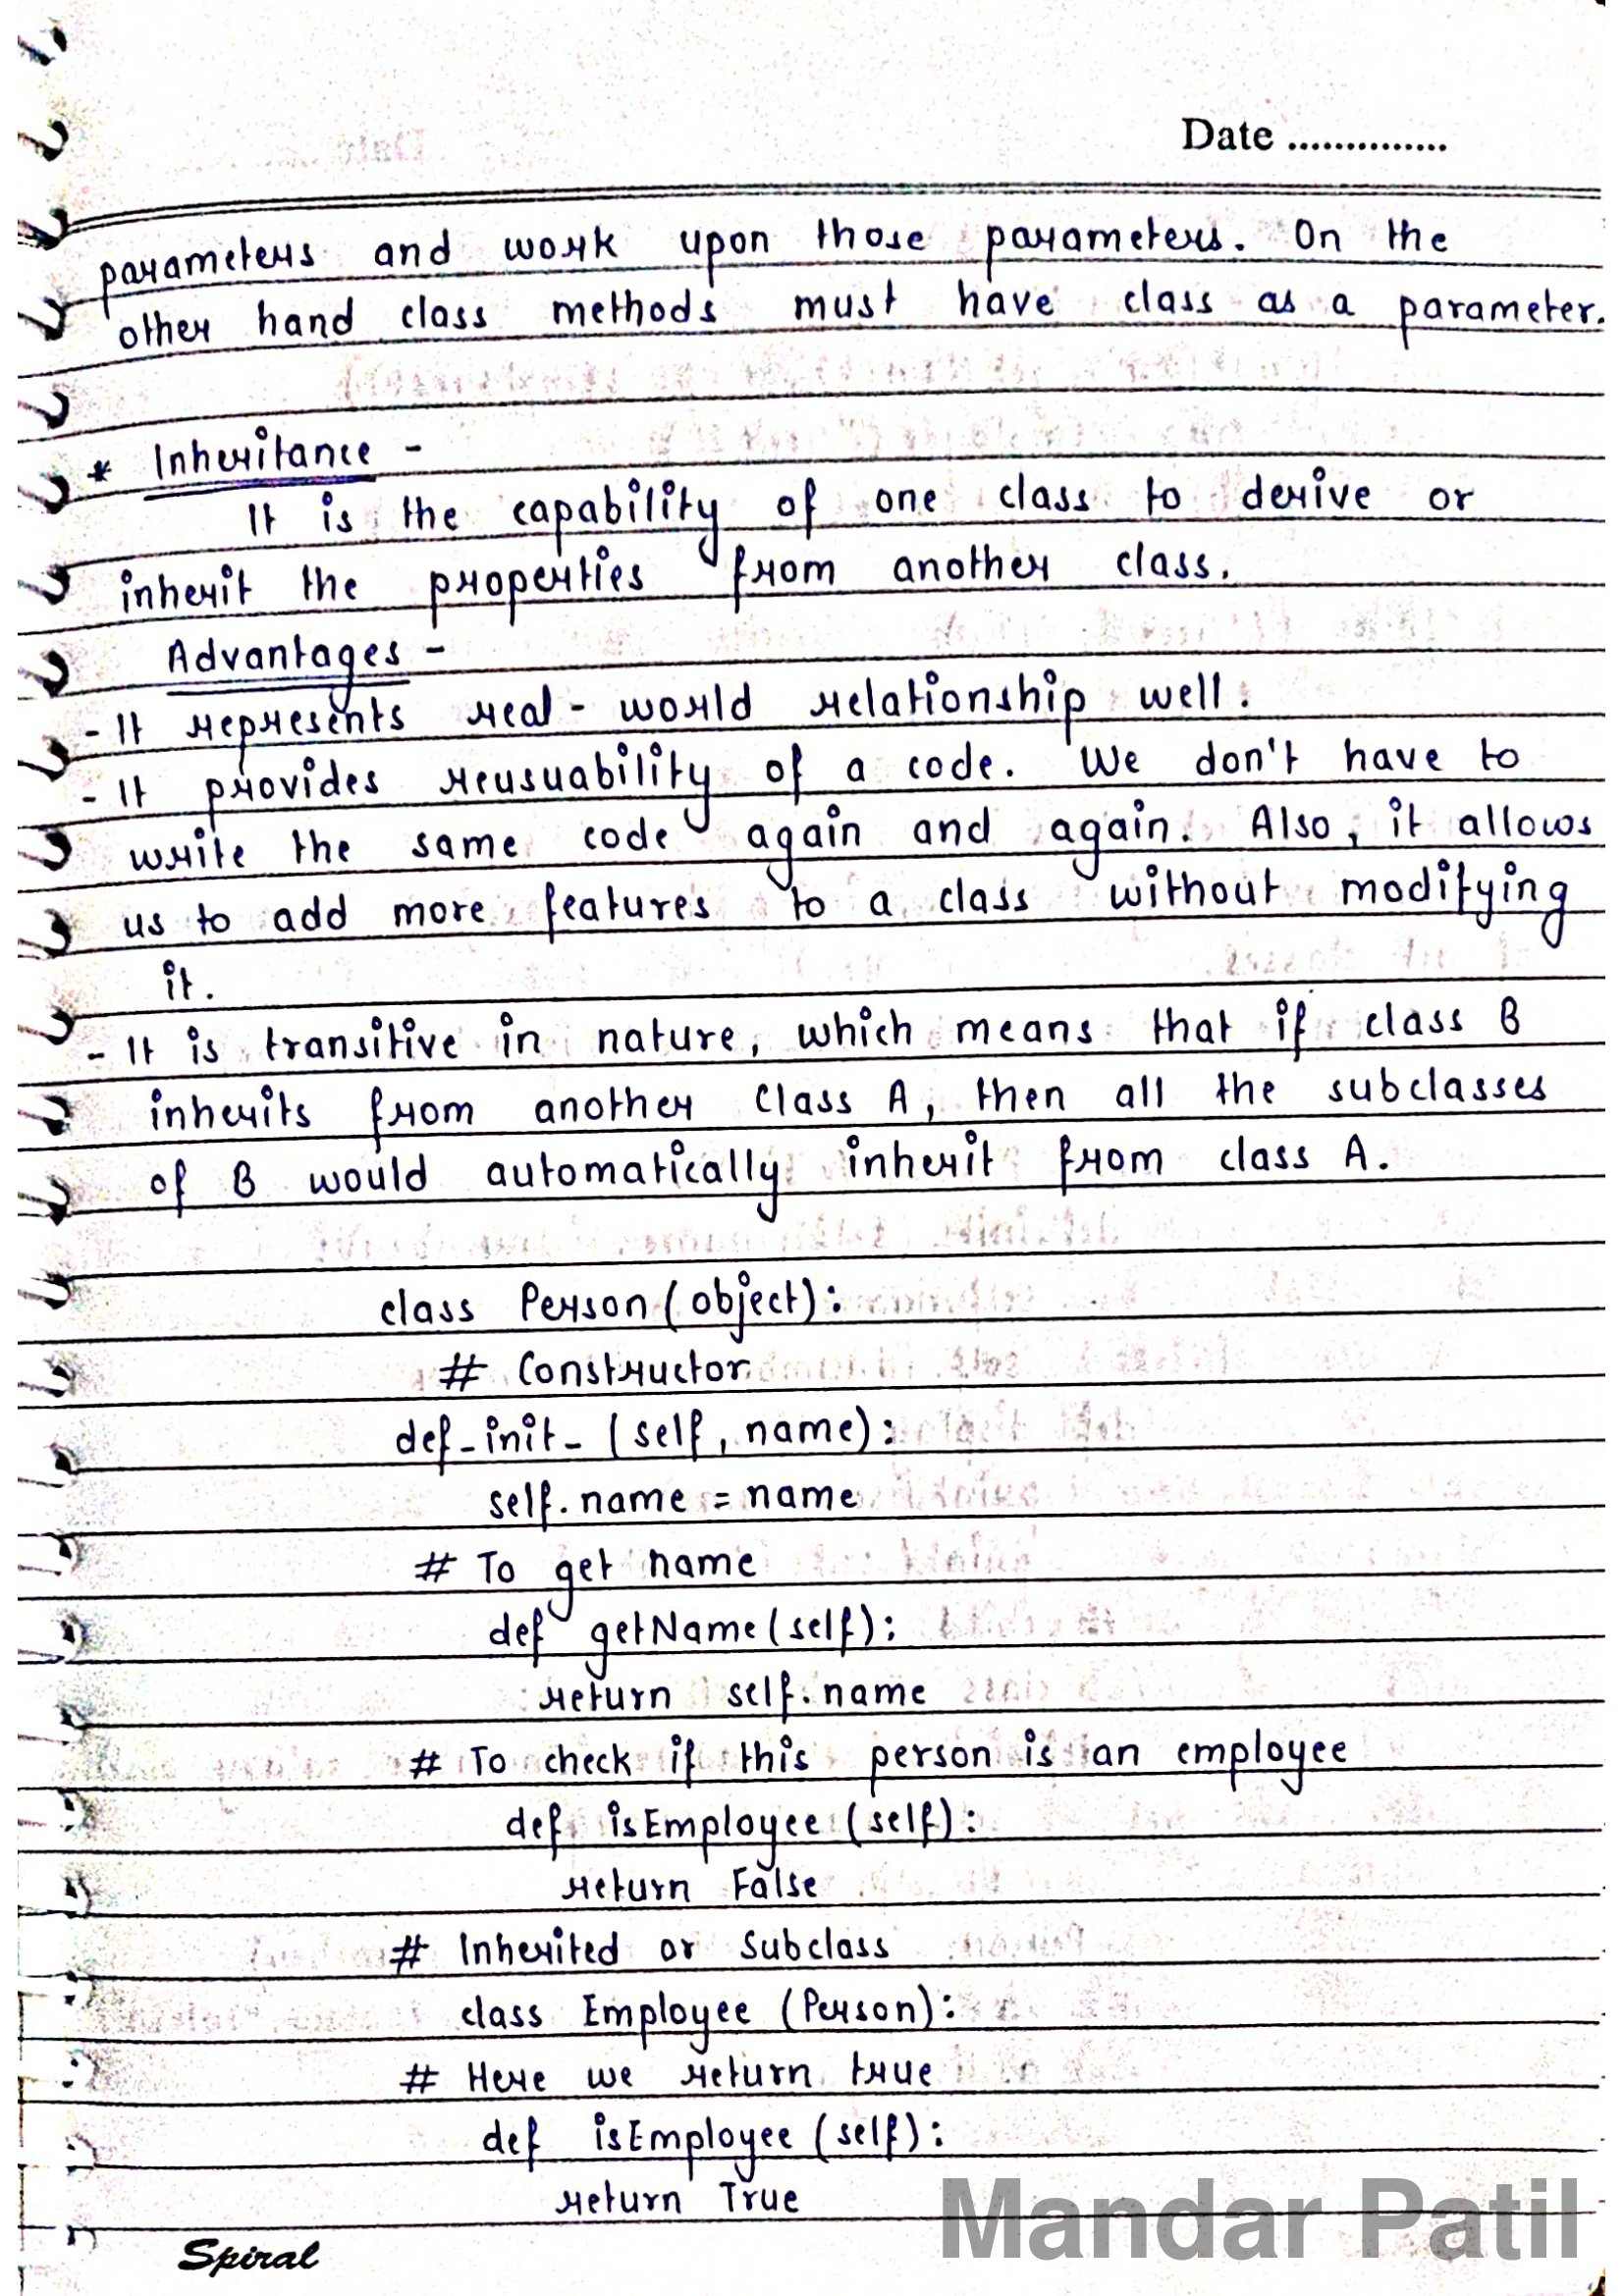 Date ..............
parameters and work upon those parameters. On the
other hand class methods must have class as a parameter.
* Inheritance -
It is the capability of one class to derive or
inherit the properties from another class.
Advantages -
- It represents real - world relationship well.
- It provides reusuability of a code. We don't have to
write the same code again and again. Also, it allows
us to add more features to a class without modifying
it.
- It is transitive in nature, which means that if class B
inherits from another class A, then all the subclasses
of B would automatically inherit from class A.
class Person (object):
# Constructor
def _init_ (self, name):
self.name = name
# To get name
def getName (self):
return self.name
# To check if this person is an employee
def isEmployee (self):
return False
# Inherited or Subclass
class Employee (Person):
# Here we return true
def isEmployee (self):
return True
Mandar Patil
Spiral